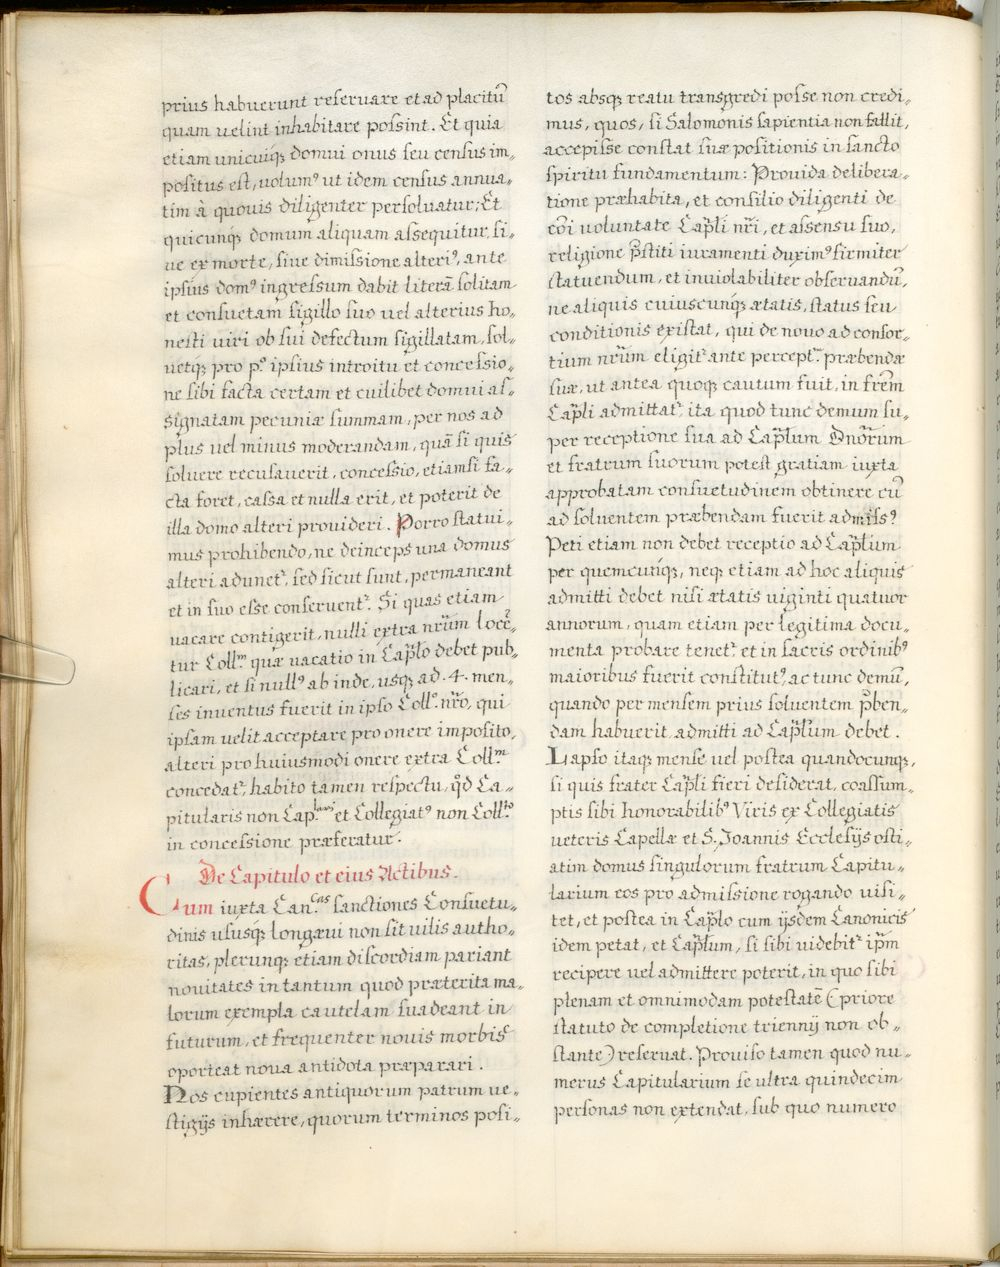 prius habuerunt reſeruare et ad placitū
quam uelint inhabitare poſsint. Et quia
etiam unicuiq; domui onus ſeu cenſus im„
poſitus eſt, uolumꝰ ut idem cenſus annua„
tim à quouis diligenter perſoluatur; Et
quicunq; domum aliquam aſsequitur, ſi„
ue ex morte, ſiue dimiſsione alteriꝰ, ante
ipſius domꝰ ingreſsum dabit literā ſolitam
et conſuetam ſigillo ſuo uel alterius ho„
neſti uiri ob ſui defectum ſigillatam, ſol„
uetq; pro pᵒ. ipſius introitu et conceſsio„
ne ſibi facta certam et cuilibet domui aſ„
ſignatam pecuniæ ſummam, per nos ad
plus uel minus moderandam, quā ſi quis
ſoluere recuſauerit, conceſsio, etiamſi fa„
cta foret, caſsa et nulla erit, et poterit de
illa domo alteri prouideri. Porro ſtatui„
mus prohibendo, ne deinceps una domus
alteri adunetᷣ, ſed ſicut ſunt, permaneant
et in ſuo eſse conſeruentᷣ. Si quas etiam
uacare contigerit, nulli extra nr̄um locē„
tur Coll.ᵐ quæ uacatio in Cap̄lo debet pub„
licari, et ſi nullꝰ ab inde, uſq; ad .4. men„
ſes inuentus fuerit in ipſo Coll.ᵒ nr̄o, qui
ipſam uelit acceptare pro onere impoſito,
alteri pro huiusmodi onere extra Coll.ᵐ
concedatᷣ, habito tamen reſpectu, qd̄ Ca„
pitularis non Cap.ˡᵃʳⁱ et Collegiatꝰ non Coll.ᵗᵒ
in conceſsione præferatur.
De Capitulo et eius Actibus.
Cum iuxta Can.ᶜᵃˢ ſanctiones Conſuetu„
dinis uſusq; longæui non ſit uilis autho„
ritas, plerunq; etiam diſcordiam pariant
nouitates in tantum quod præterita ma„
lorum exempla cautelam ſuadeant in
futurum, et frequenter nouis morbis
oporteat noua antidota præparari.
Nos cupientes antiquorum patrum ue„
ſtigijs inhærere, quorum terminos poſi„
tos absq; reatu transgredi poſse non credi„
mus, quos, ſi Salomonis ſapientia non fallit,
accepiſse conſtat ſuæ poſitionis in ſancto
ſpiritu fundamentum: Prouida delibera„
tione præhabita, et conſilio diligenti de
cōi uoluntate Cap̄li nr̄i, et aſsensu ſuo,
religione p̄ſtiti iuramenti duximꝰ firmiter
ſtatuendum, et inuiolabiliter obſeruandū,
ne aliquis cuiuscunq; ætatis, ſtatus ſeu
conditionis exiſtat, qui de nouo ad conſor„
tium nr̄um eligitᷣ ante percept.ᵐ præbendæ
ſuæ, ut antea quoq; cautum fuit, in fr̄em
Cap̄li admittatᷣ, ita quod tunc demum ſu„
per receptione ſua ad Cap̄lum Dnōrum
et fratrum ſuorum poteſt gratiam iuxta
approbatam conſuetudinem obtinere cū
ad ſoluentem præbendam fuerit admiſsꝰ
Peti etiam non debet receptio ad Cap̄lum
per quemcunq;, neq; etiam ad hoc aliquis
admitti debet niſi ætatis uiginti quatuor
annorum, quam etiam per legitima docu„
menta probare tenetᷣ et in ſacris ordinibꝰ
maioribus fuerit conſtitutꝰ, ac tunc demū,
quando per menſem prius ſoluentem p̄ben„
dam habuerit, admitti ad Cap̄lum debet.
Lapſo itaq; menſe uel poſtea quandocunq;,
ſi quis frater Cap̄li fieri deſiderat, coaſſum„
ptis ſibi honorabilibꝰ Viris ex Collegiatis
ueteris Capellæ et S. Joannis Eccleſijs oſti„
atim domus ſingulorum fratrum Capitu„
larium eos pro admiſsione rogando uiſi„
tet, et poſtea in Cap̄lo cum ijsdem Canonicis
idem petat, et Cap̄lum, ſi ſibi uidebitᷣ ip̄m
recipere uel admittere poterit, in quo ſibi
plenam et omnimodam poteſtatē (priore
ſtatuto de completione triennij non ob„
ſtante) reſeruat. Prouiſo tamen quod nu„
merus Capitularium ſe ultra quindecim
perſonas non extendat, ſub quo numero